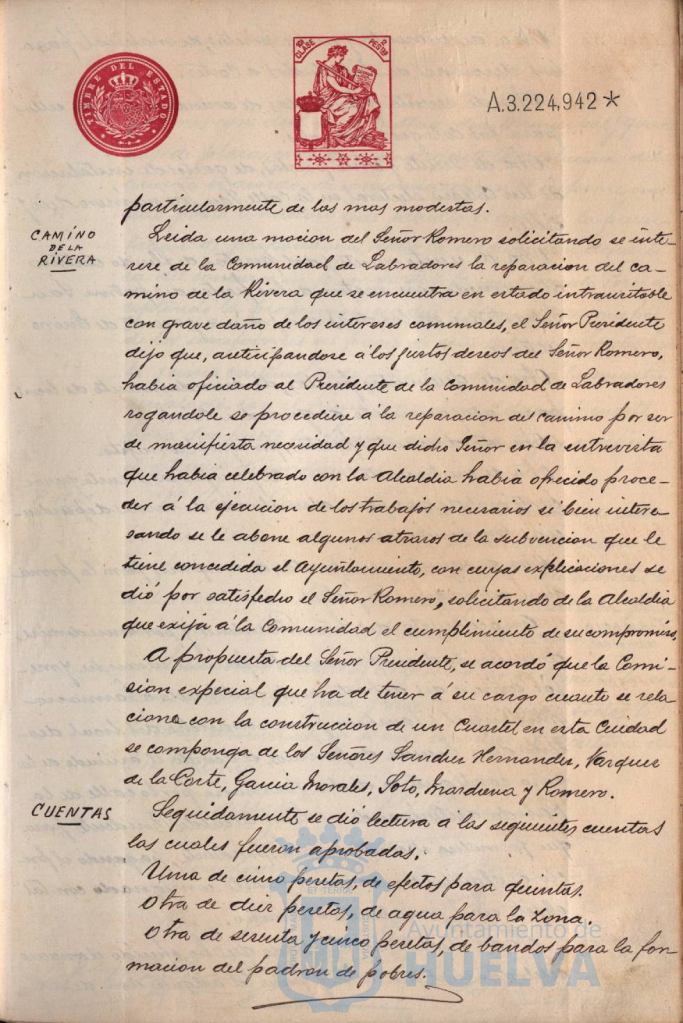 TIMBRE DEL ESTADO
10ª CLASE
2 PESTAS
A.3.224,942*
particularmente de las mas modestas.
CAMINO
DE LA
RIVERA
Leida una mocion del Señor Romero solicitando se inte-
rese de la Comunidad de Labradores la reparacion del ca-
mino de la Rivera que se encuentra en estado intransitable
con grave daño de los intereses comunales, el Señor Presidente
dijo que, anticipandose á los justos deseos del Señor Romero,
habia oficiado al Presidente de la Comunidad de Labradores
rogandole se procediese á la reparacion del camino por ser
de manifiesta necesidad y que dicho Señor en la entrevista
que habia celebrado con la Alcaldia habia ofrecido proce-
der á la ejecucion de los trabajos necesarios si bien intere-
sando se le abone algunos atrasos de la subvencion que le
tiene concedida el Ayuntamiento, con cuyas explicaciones se
dió por satisfecho el Señor Romero, solicitando de la Alcaldia
que exija á la Comunidad el cumplimiento de su compromiso.
A propuesta del Señor Presidente, se acordó que la Comi-
sion especial que ha de tener á su cargo cuanto se rela-
cione con la construccion de un Cuartel en esta Ciudad
se componga de los Señores Sanchez Hernandez, Vazquez
de la Corte, Garcia Morales, Soto, Marchena y Romero.
CUENTAS
Seguidamente se dió lectura á las siguientes cuentas
las cuales fueron aprobadas:
Una de cinco pesetas, de efectos para quintas.
Otra de diez pesetas, de agua para la Zona.
Otra de sesenta y cinco pesetas, de bandos para la for-
macion del padron de pobres.
Ayuntamiento de
HUELVA